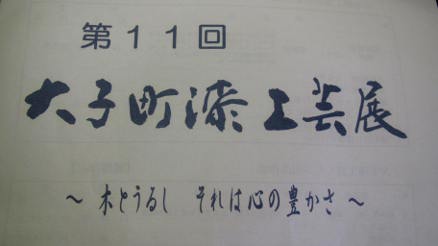 第11回
大子町漆工芸展
～木とうるし それは心の豊かさ～